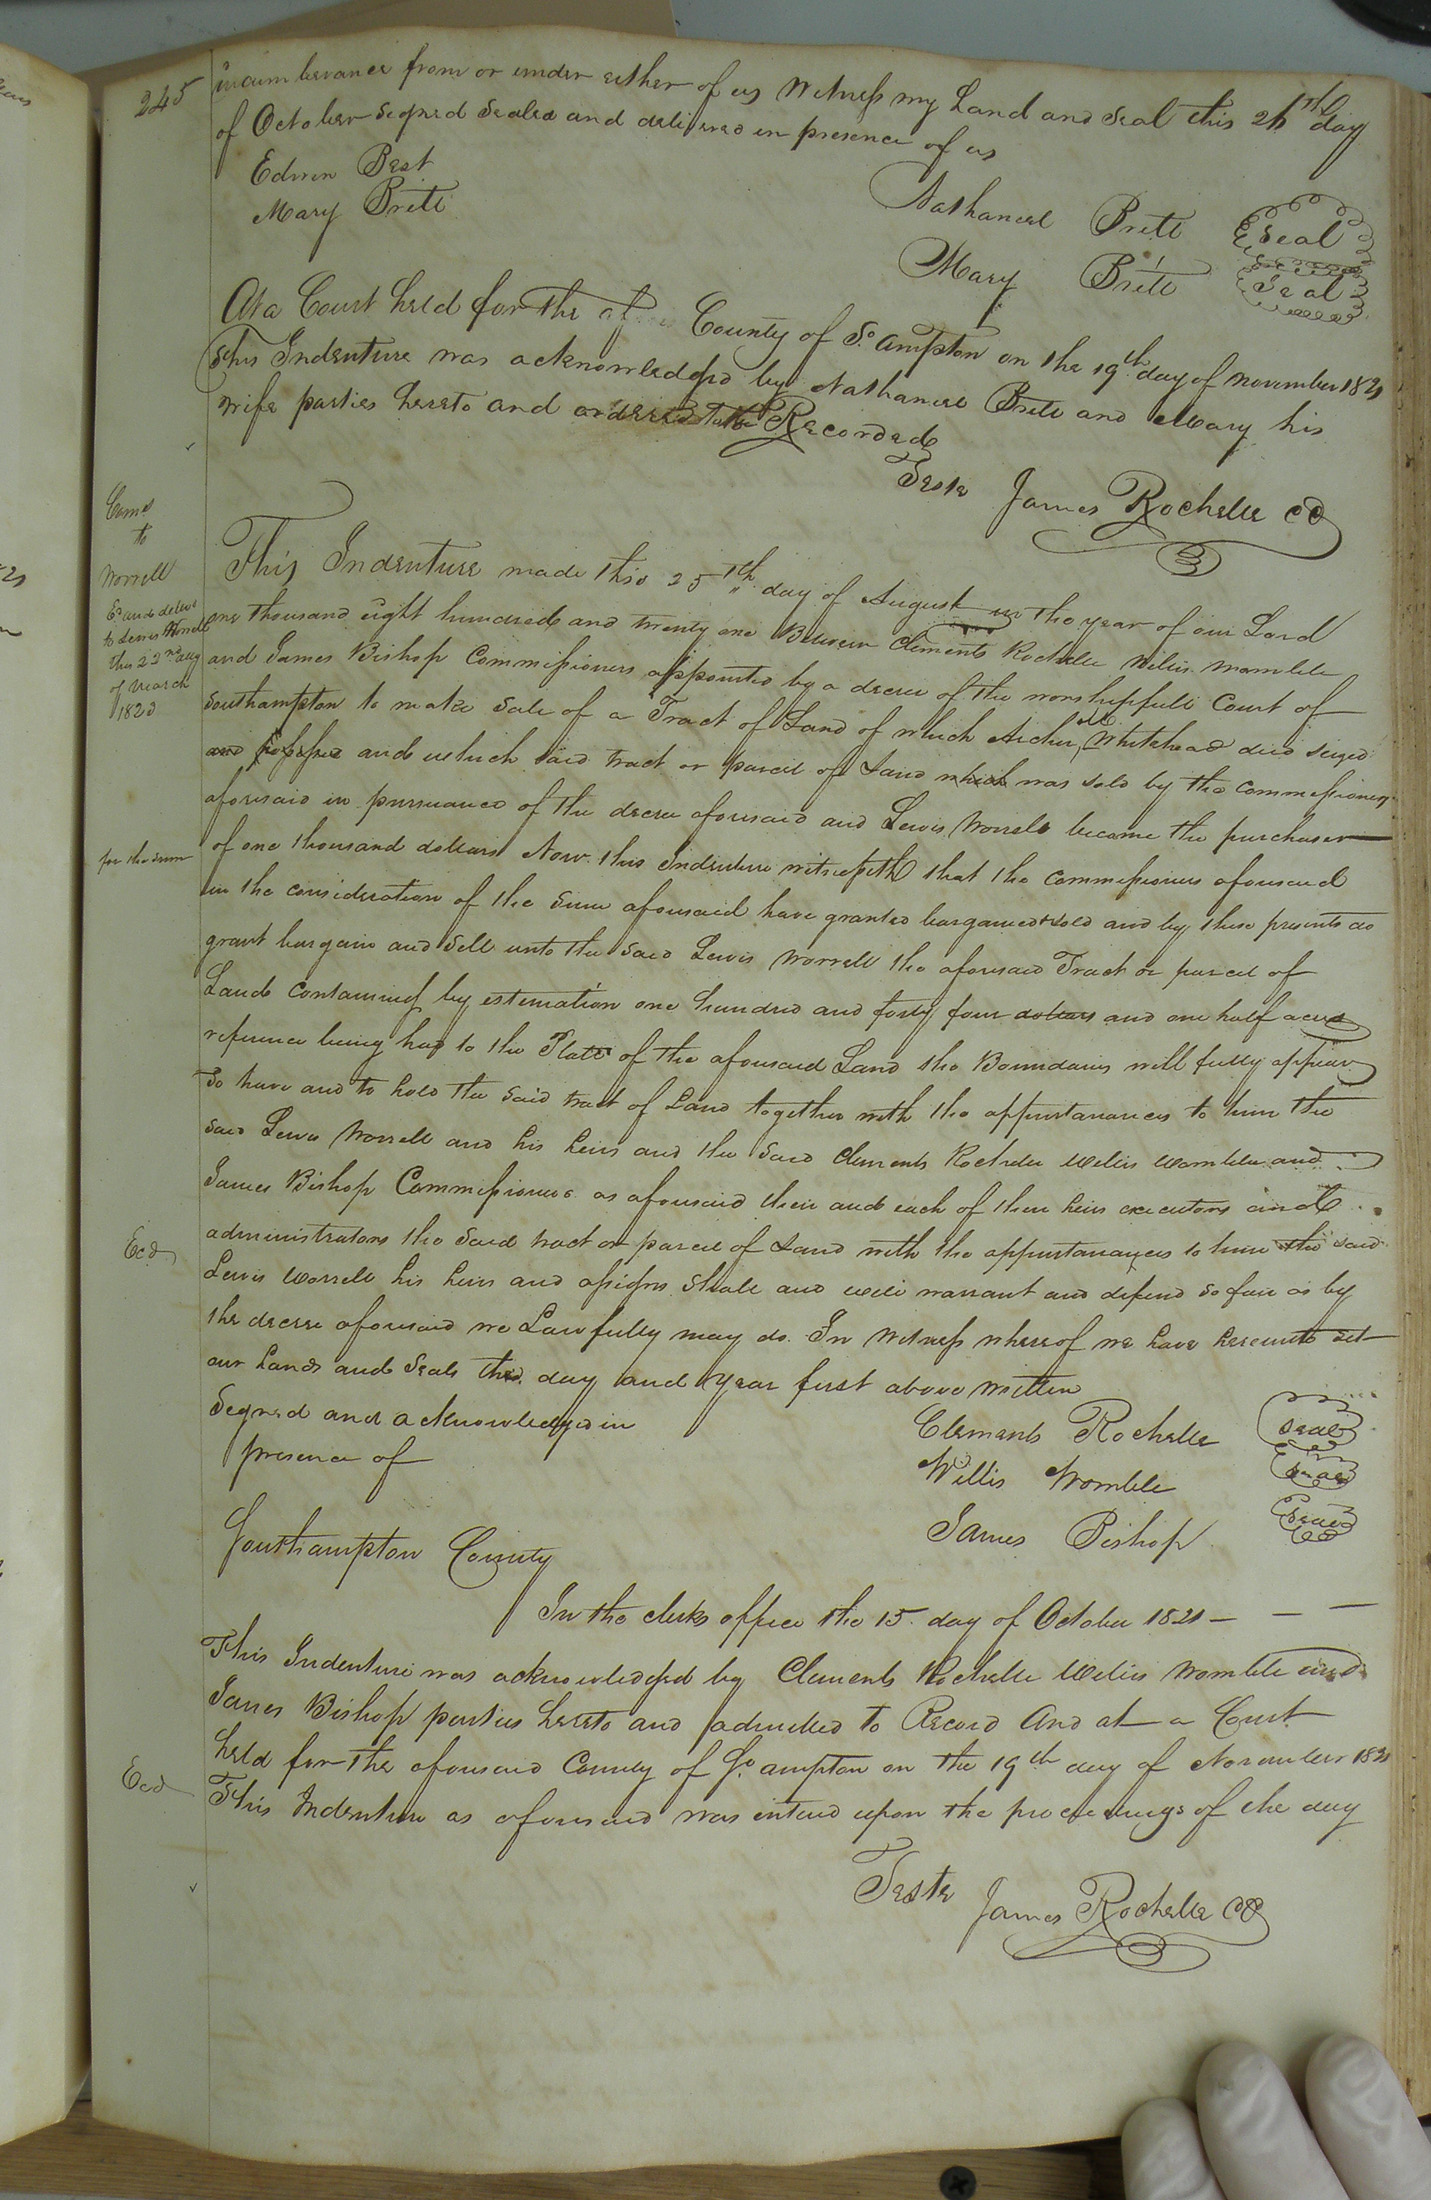 245
incumberance from or under either of us Witness my Hand and Seal this 26th day
of October signed sealed and delivered in presence of us
Edwin Best
Mary Britt
Nathaniel Britt Seal
Mary Britt Seal
At a Court held for the County of So.ampton on the 19th day of November 1821
This Indenture was acknowledged by Nathaniel Britt and Mary his
wife parties hereto and ordered to be Recorded
Teste James Rochelle CC
Coms
to
Worrell
Ed and delivd
to Lewis Worrell
this 22nd day
of March
1823
This Indenture made this 25th day of August in the year of our Lord
one thousand eight hundred and twenty one Between Clements Rochelle Willis Womble
and James Bishop Commissioners appointed by a decree of the worshipfull Court of
Southampton to make sale of a Tract of Land of which Archer Whitehead died seized
and possessed and which said tract or parcel of Land which was sold by the Commissioners
aforesaid in pursuance of the decree aforesaid and Lewis Worrell became the purchaser
for the sum
of one thousand dollars Now this Indenture witnesseth that the Commissioners aforesaid
in the consideration of the sum aforesaid have granted bargained & sold and by these presents do
grant bargain and sell unto the said Lewis Worrell the aforesaid Tract or parcel of
Land containing by estimation one hundred and forty four dollars and one half acres
reference being had to the Platt of the aforesaid Land the Boundaries will fully appear
To have and to hold the said tract of Land together with the appurtanances to him the
said Lewis Worrell and his heirs and the said Clements Rochelle Willis Womble and
James Bishop Commissioners as aforesaid their and each of their heirs executors and
Ecd
administrators the said tract or parcel of Land with the appurtanances to him the said
Lewis Worrell his heirs and assigns shall and will warrant and defend so far as by
the decree aforesaid we Lawfully may do. In Witness whereof we have hereunto set
our hands and seals the day and year first above written
Signed and acknowledged in
presence of
Clements Rochelle seal
Willis Womble seal
James Bishop seal
Southampton County
In the clerks office the 15 day of October 1821 — — —
This Indenture was acknowledged by Clements Rochelle Willis Womble and
James Bishop parties hereto and admitted to Record And at a Court
held for the aforesaid County of So.ampton on the 19th day of November 1821
Ecd
This Indenture as aforesaid was entered upon the proceedings of the day
Teste James Rochelle CC